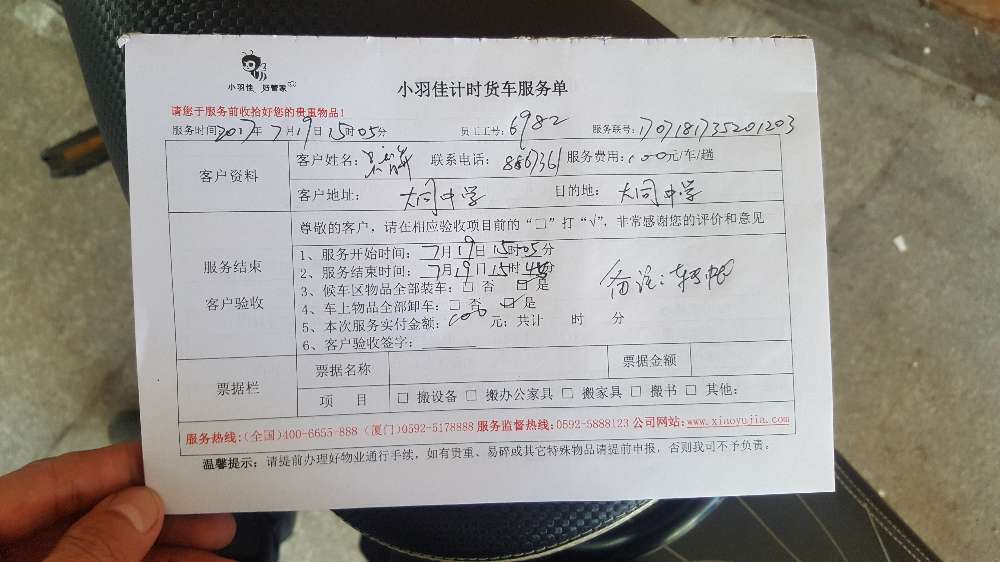 小羽佳 好管家
小羽佳计时货车服务单
请您于服务前收拾好您的贵重物品!
服务时间2017年7月19日15时05分 员工工号:6982 服务联号:1707181735201203
客户资料
客户姓名: 联系电话:8867361 服务费用:100元/车/趟
客户地址: 大同中学 目的地: 大同中学
服务结束
客户验收
尊敬的客户,请在相应验收项目前的“□”打“√”,非常感谢您的评价和意见
1、服务开始时间:7月19日15时05分
2、服务结束时间:7月19日15时45分
3、候车区物品全部装车:□ 否 ☑ 是
4、车上物品全部卸车:□ 否 ☑ 是
5、本次服务实付金额:100元;共计 时 分
6、客户验收签字:
备注:
票据栏
票据名称 票据金额
项 目 □ 搬设备 □ 搬办公家具 □ 搬家具 □ 搬书 □ 其他:
服务热线:(全国)400-6655-888 (厦门)0592-5178888 服务监督热线:0592-5888123 公司网站:www.xiaoyujia.com
温馨提示:请提前办理好物业通行手续,如有贵重、易碎或其它特殊物品请提前申报,否则我司不予负责。